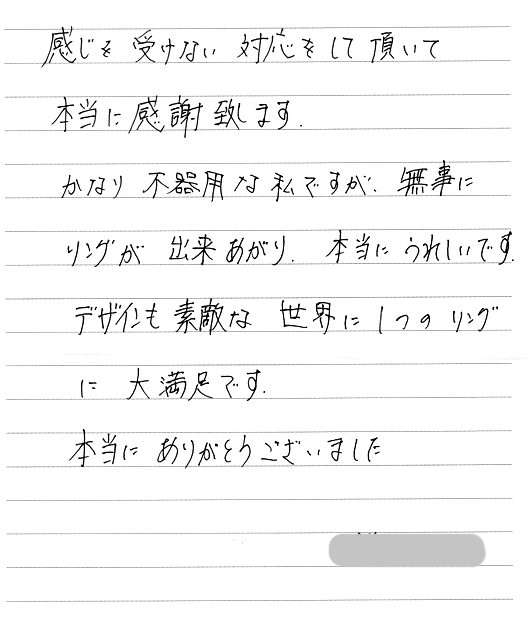 感じを受けない対応をして頂いて
本当に感謝致します.
かなり不器用な私ですが、無事に
リングが出来あがり、本当にうれしいです.
デザインも素敵な世界に1つのリング
に大満足です.
本当にありがとうございました